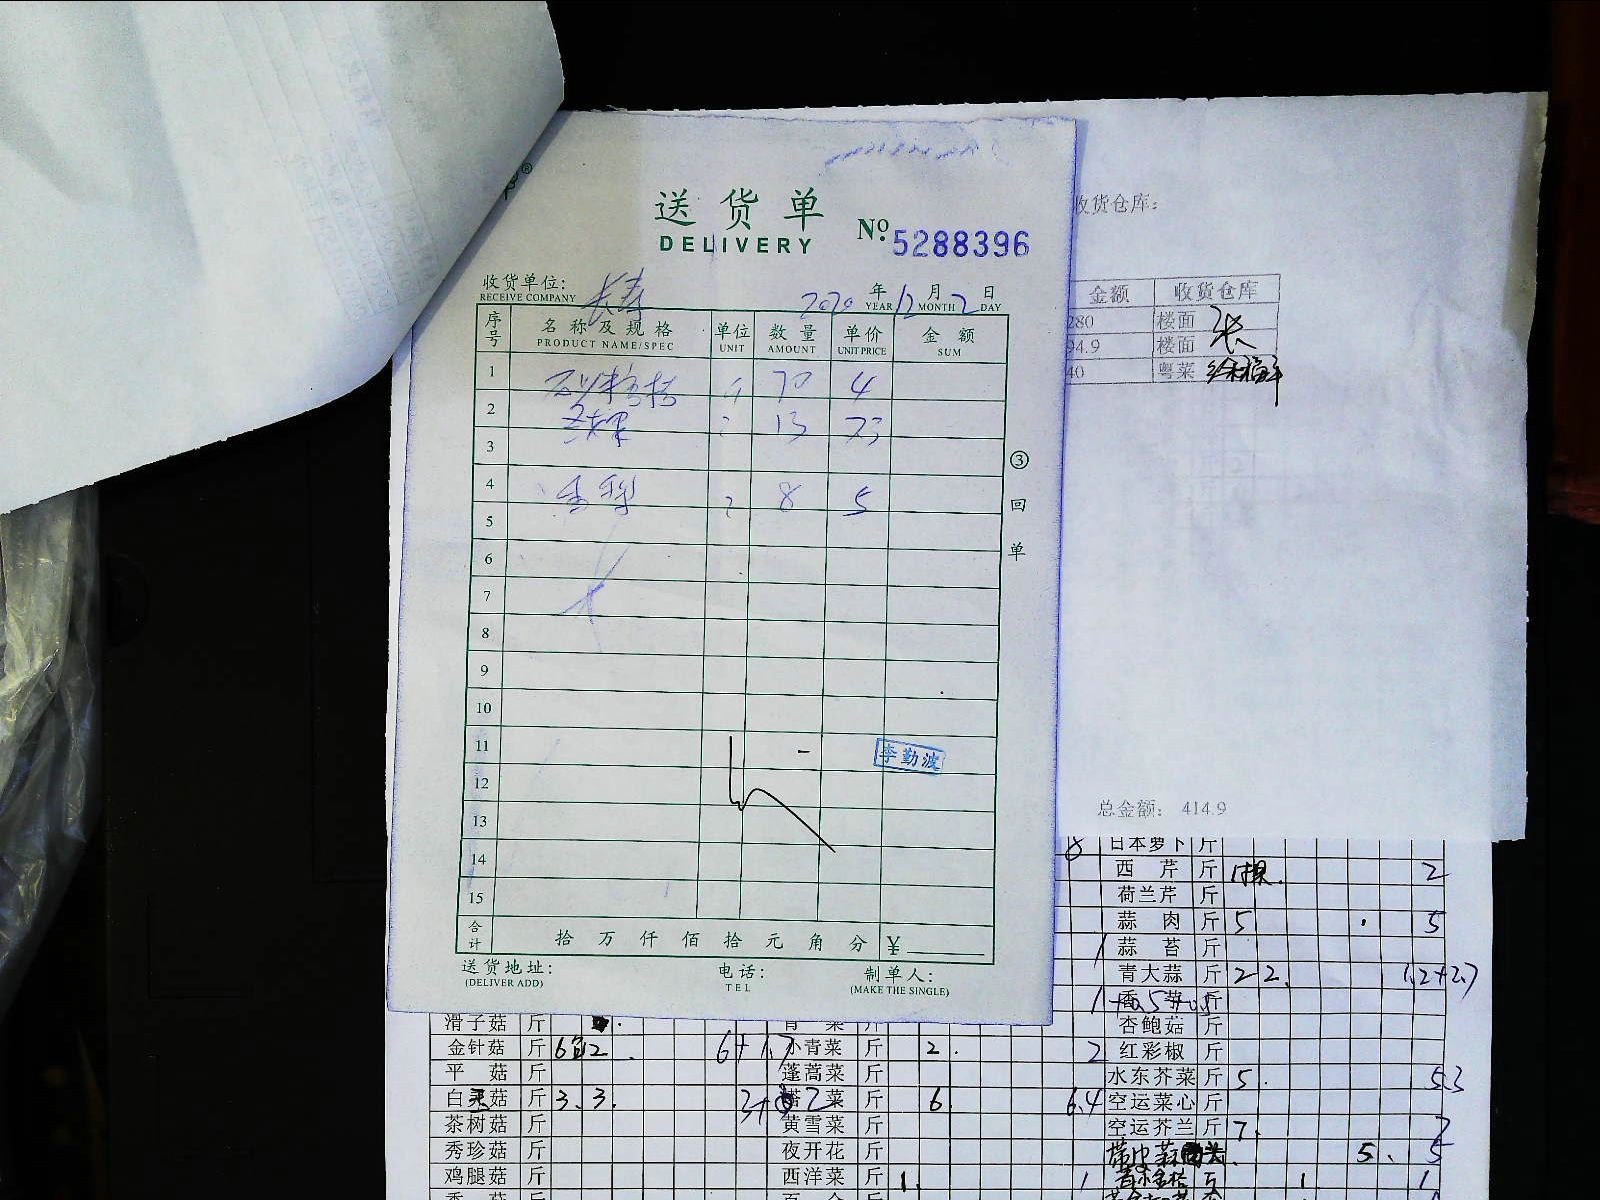 送货单
DELIVERY
No. 5288396
收货单位: 长寿
RECEIVE COMPANY
2020 年 12 月 2 日
YEAR MONTH DAY
序号 名称及规格 单位 数量 单价 金额
PRODUCT NAME/SPEC UNIT AMOUNT UNIT PRICE SUM
1 70 4
2 13 23
3
4 香梨 8 5
5
6
7
8
9
10
11 李勤波
12
13
14
15
合计 拾 万 仟 佰 拾 元 角 分 ¥
送货地址: 电话: 制单人:
(DELIVER ADD) TEL (MAKE THE SINGLE)
③ 回单
收货仓库:
金额 收货仓库
280 楼面 张
94.9 楼面
40 粤菜
总金额: 414.9
8 日本萝卜 斤
西芹 斤 1棵. 2
荷兰芹 斤
蒜肉 斤 5 5
蒜苔 斤
青大蒜 斤 22. 1.2+2.7
斤
杏鲍菇 斤
滑子菇 斤 青菜 斤
金针菇 斤 6包2 6+1.7 小青菜 斤 2. 2 红彩椒 斤
平菇 斤 蓬蒿菜 斤 水东芥菜 斤 5. 5.3
白灵菇 斤 3.3. 菜 斤 6. 6.4 空运菜心 斤
茶树菇 斤 黄雪菜 斤 空运芥兰 斤 7. 7
秀珍菇 斤 夜开花 斤 5. 5
鸡腿菇 斤 西洋菜 斤 1. 1 斤 1 1